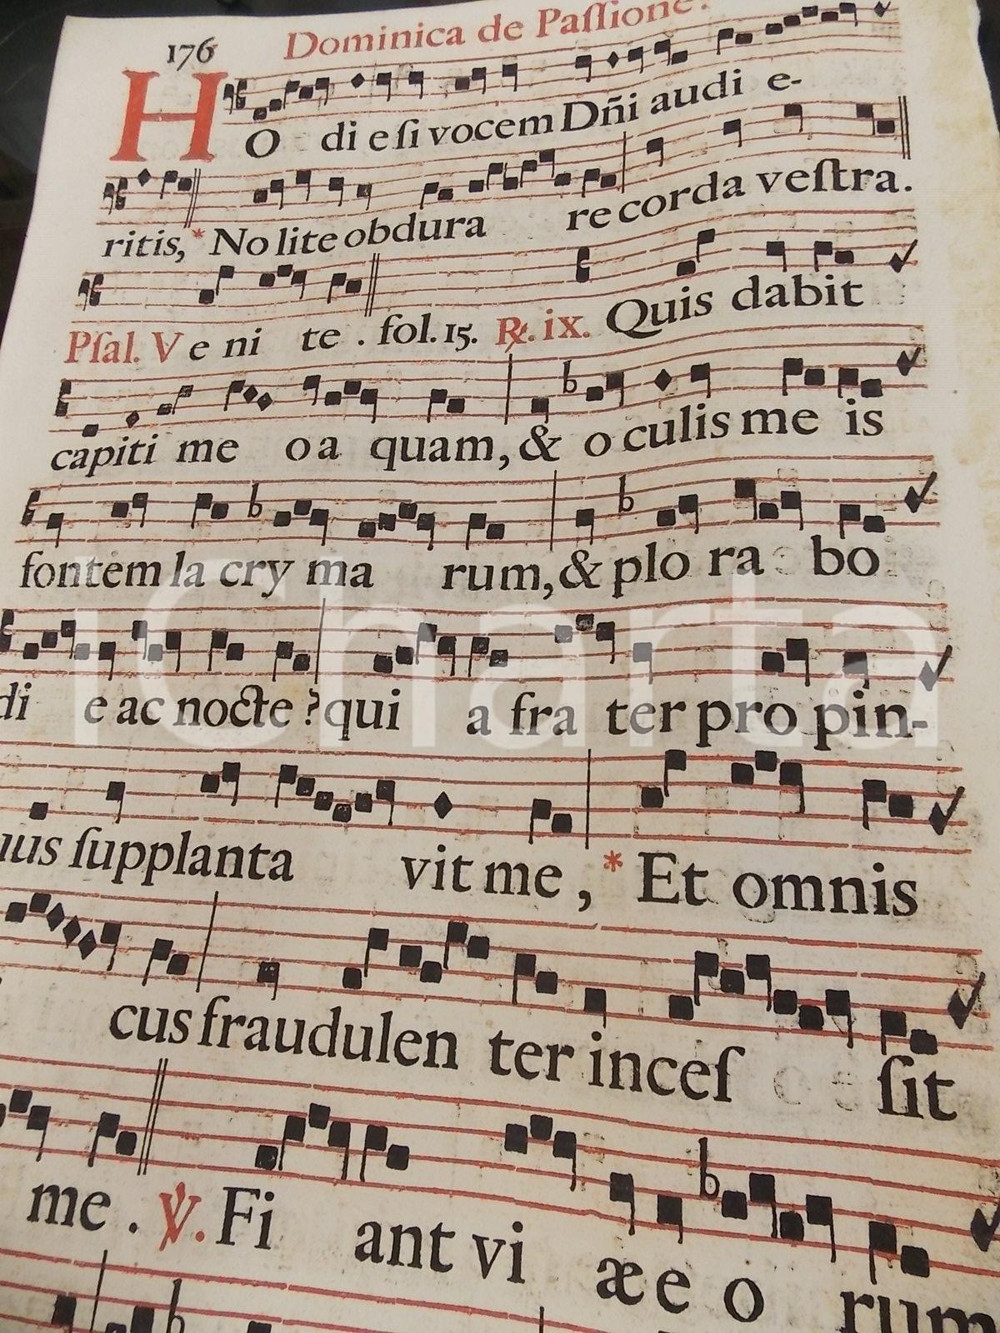 176 Dominica de Paſſione.
HO di e ſi vocem Dñi audi e-
ritis, * No lite obdura re corda veſtra.
Pſal. V e ni te . fol. 15. ℟. ix. Quis dabit
capiti me o a quam, & o culis me is
fontem la cry ma rum, & plo ra bo
di e ac nocte ? qui a fra ter pro pin-
uus ſupplanta vit me , * Et omnis
cus fraudulen ter inceſ ſit
me . ℣. Fi ant vi æ e o rum
iCharta